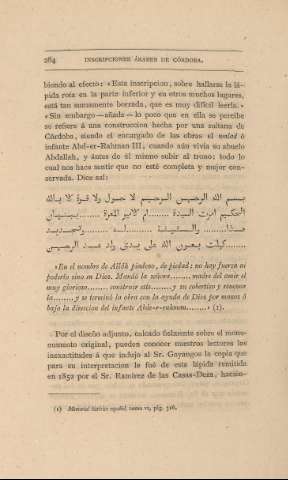 284 INSCRIPCIONES ÁRABES DE CÓRDOBA.
biendo al efecto: «Esta inscripcion, sobre hallarse la lá-
pida rota en la parte inferior y en otros muchos lugares,
está tan sumamente borrada, que es muy difícil leerla.»
«Sin embargo—añade—lo poco que en ella se percibe
se refiere á una construccion hecha por una sultana de
Córdoba, siendo el encargado de las obras el walad ó
infante Abd-er-Rahman III, cuando aún vivia su abuelo
Abdallah, y ántes de él mismo subir al trono: todo lo
cual nos hace sentir que no esté completa y mejor con-
servada. Dice así:
بسم الله الرحمن الرحيم لا حول ولا قوة الا بالله
الحكيم امرت السيدة ....... ام
هذا
كملت بعون الله على يدي ولد عبد الرحمن
«En el nombre de Alláh piadoso, de piedad: no hay fuerza ni
poderío sino en Dios. Mandó la señora....... madre del amir el
muy glorioso....... construir este...... y su cobertizo y renovar
la........y se terminó la obra con la ayuda de Dios por manos ó
bajo la direccion del infante Abd-er-rahman.......» (1).
Por el diseño adjunto, calcado fielmente sobre el monu-
mento original, pueden conocer nuestros lectores las
inexactitudes á que indujo al Sr. Gayangos la copia que
para su interpretacion le fué de esta lápida remitida
en 1852 por el Sr. Ramirez de las Casas-Deza, hacién-
(1) Memorial histórico español, tomo VI, pág. 316.